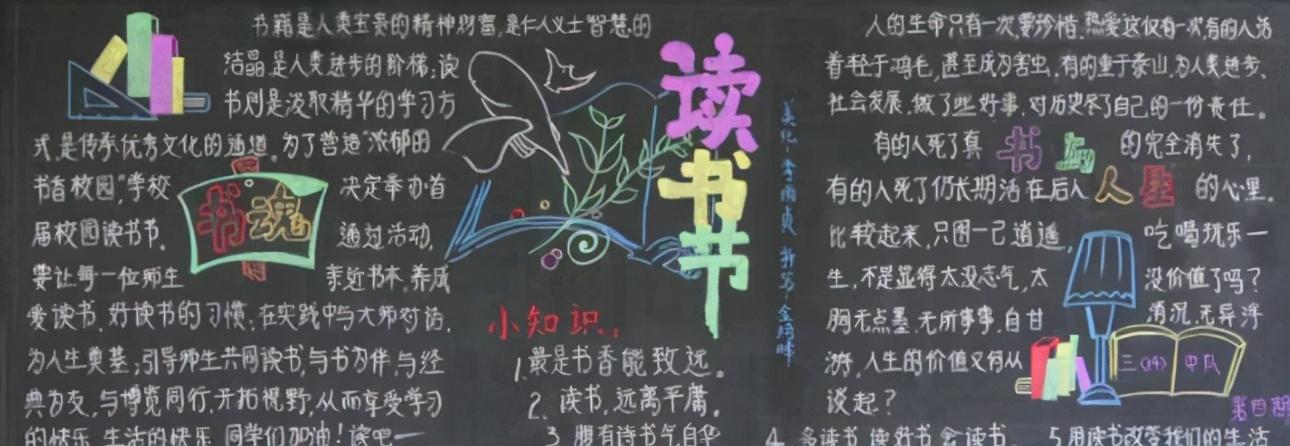 书籍是人类宝贵的精神财富,是仁人义士智慧的
结晶,是人类进步的阶梯;读
书则是汲取精华的学习方
式,是传承优秀文化的通道。为了营造"浓郁的
书香校园",学校
决定举办首
届校园读书节。
通过活动,
要让每一位师生
亲近书本,养成
爱读书、好读书的习惯;在实践中与大师对话,
为人生奠基;引导师生共同读书,与书为伴,与经
典为友,与博览同行,开拓视野,从而享受学习
的快乐、生活的快乐。同学们加油!读吧一
书魂
读书节
小知识:
1.最是书香能致远。
2.读书,远离平庸。
3.腹有诗书气自华
4.多读书 读好书 会读书。
5.用读书改变我们的生活
人的生命只有一次,要珍惜,热爱这仅有一次,有的人活
着轻于鸿毛,甚至成为害虫,有的重于泰山,为人类进步、
社会发展,做了些好事,对历史尽了自己的一份责任。
有的人死了真
的完全消失了,
书与
有的人死了仍长期活在后人
的心里。
人生
比较起来,只图一己逍遥,
吃喝玩乐一
生,不是显得太没志气,太
没价值了吗?
胸无点墨,无所事事,自甘
消沉,无异浮
游,人生的价值又何从
谈起?
三(14)中队